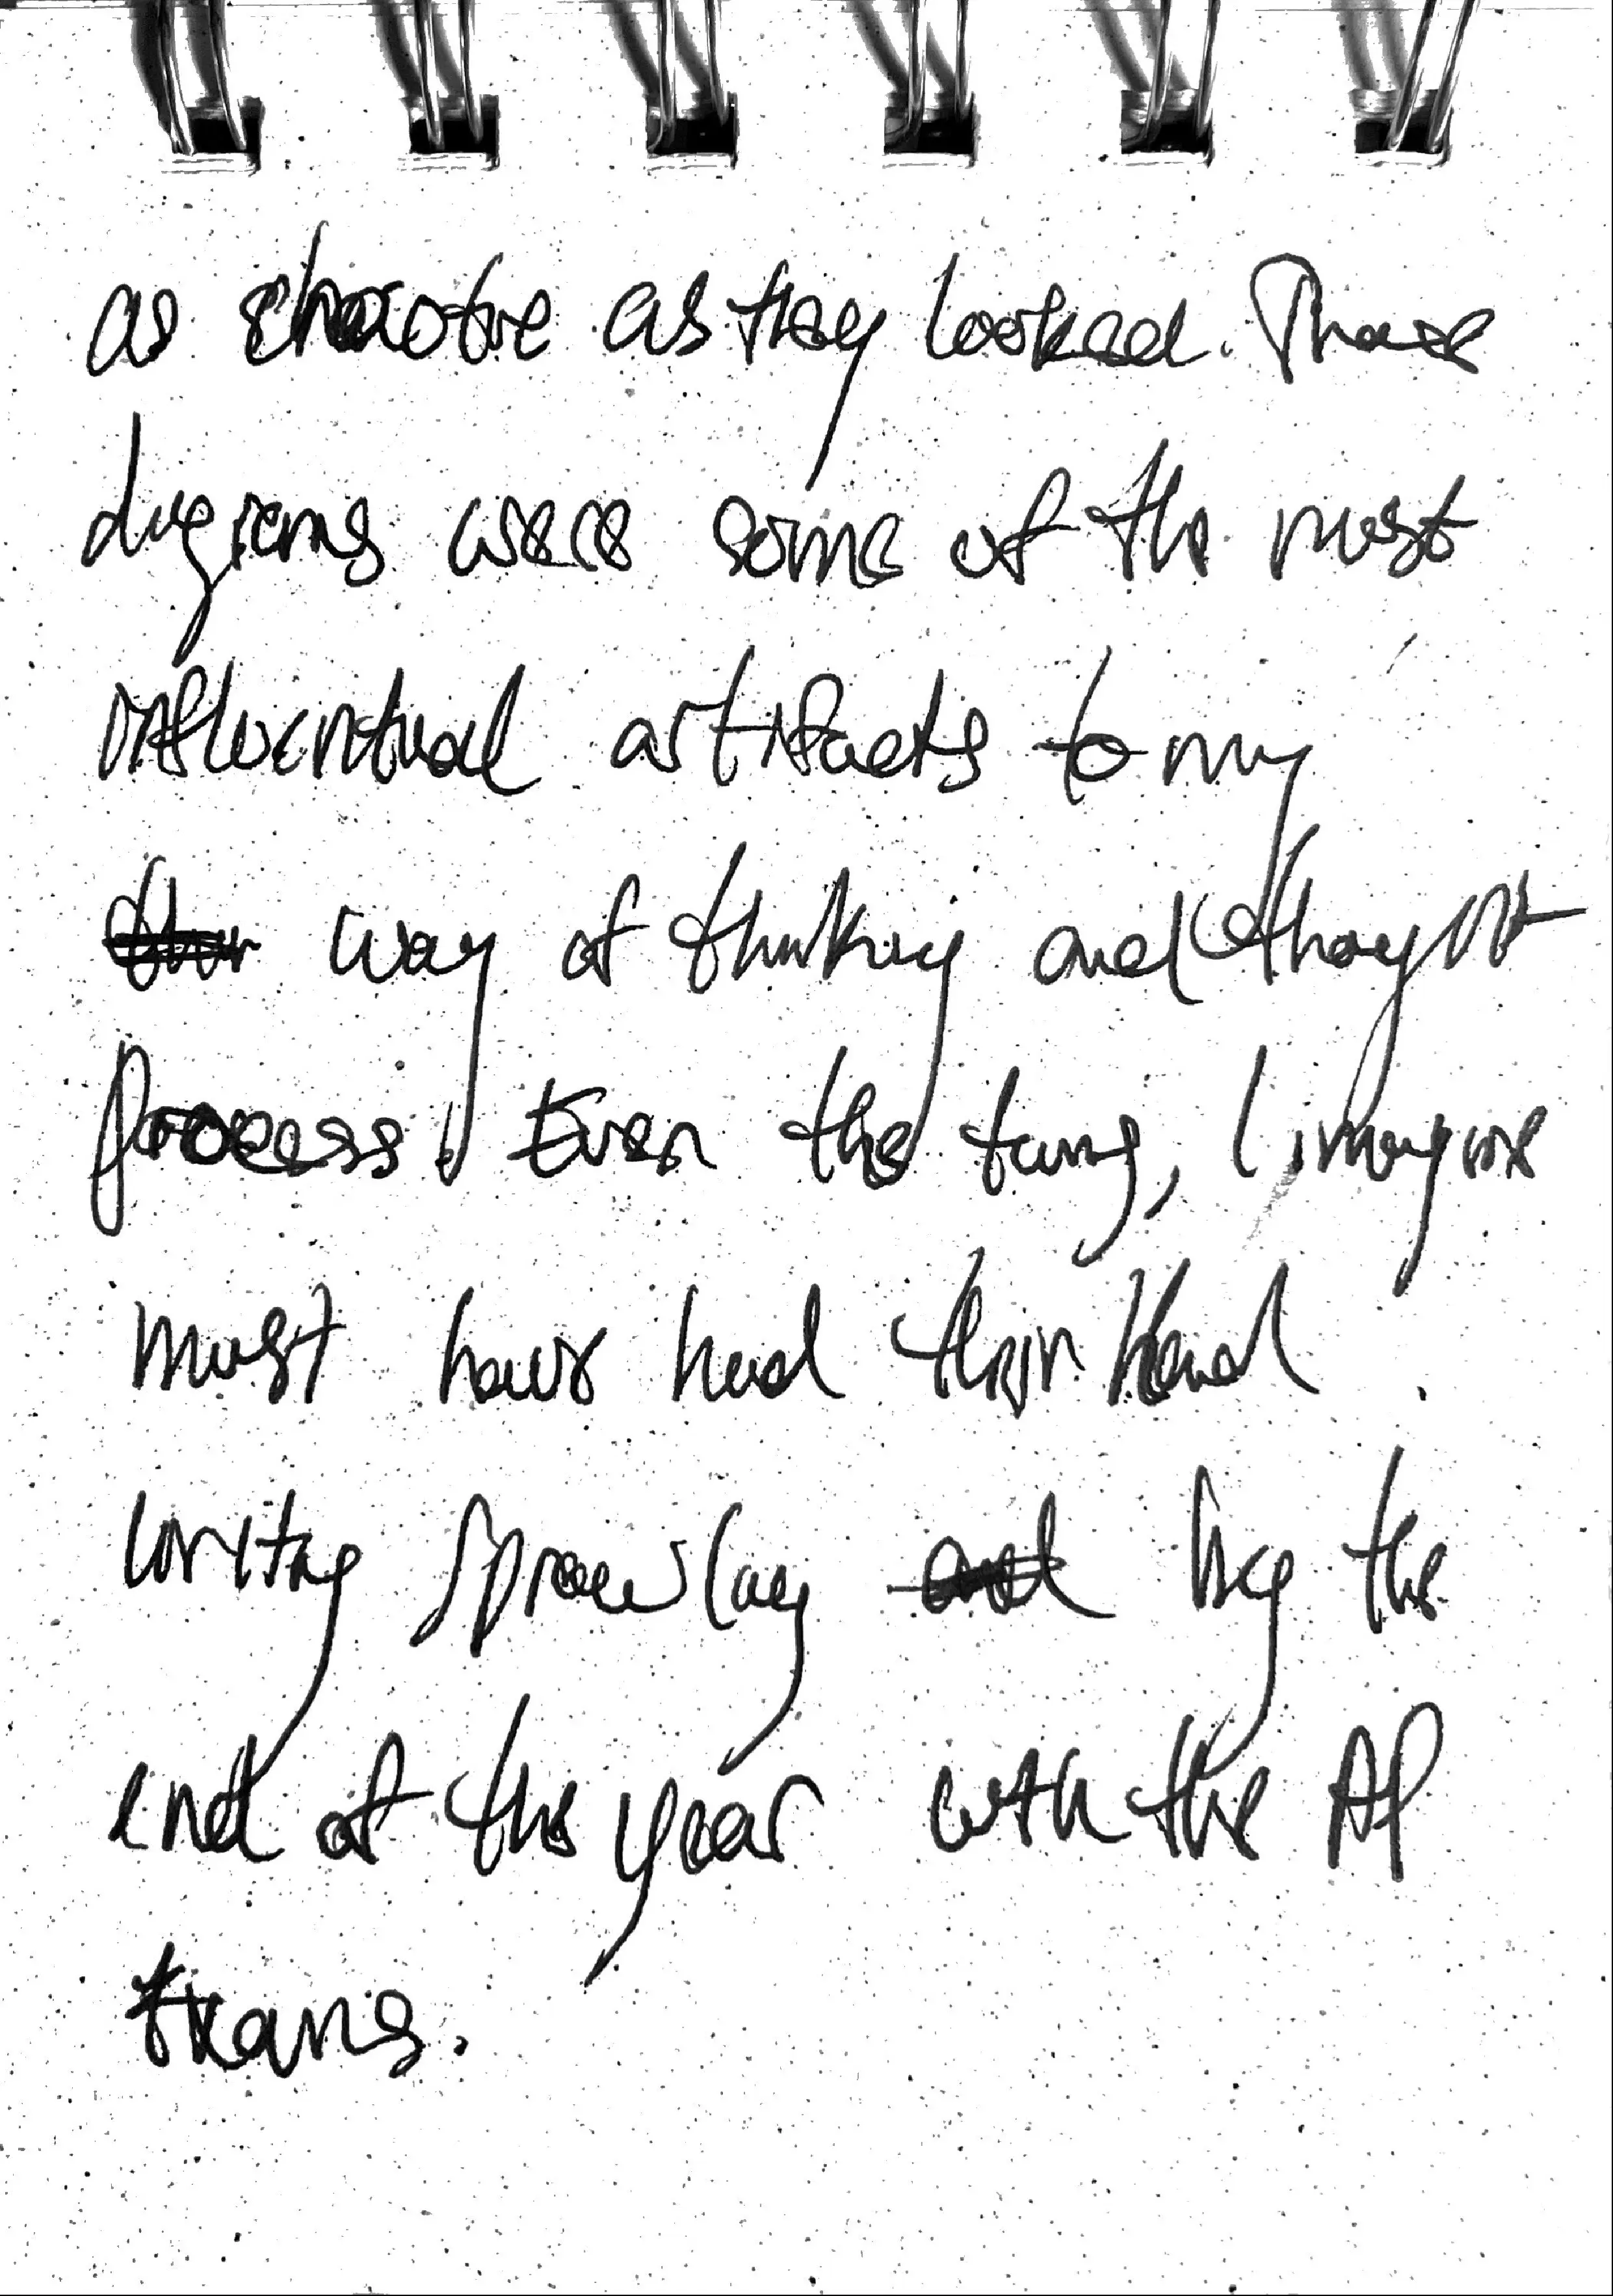 as chaotic as they looked. Those
diagrams were some of the most
influential artifacts to my
way of thinking and thought
process. Even the , I imagine
must have had their hand
writing sprawling by the
end of the year with the AP